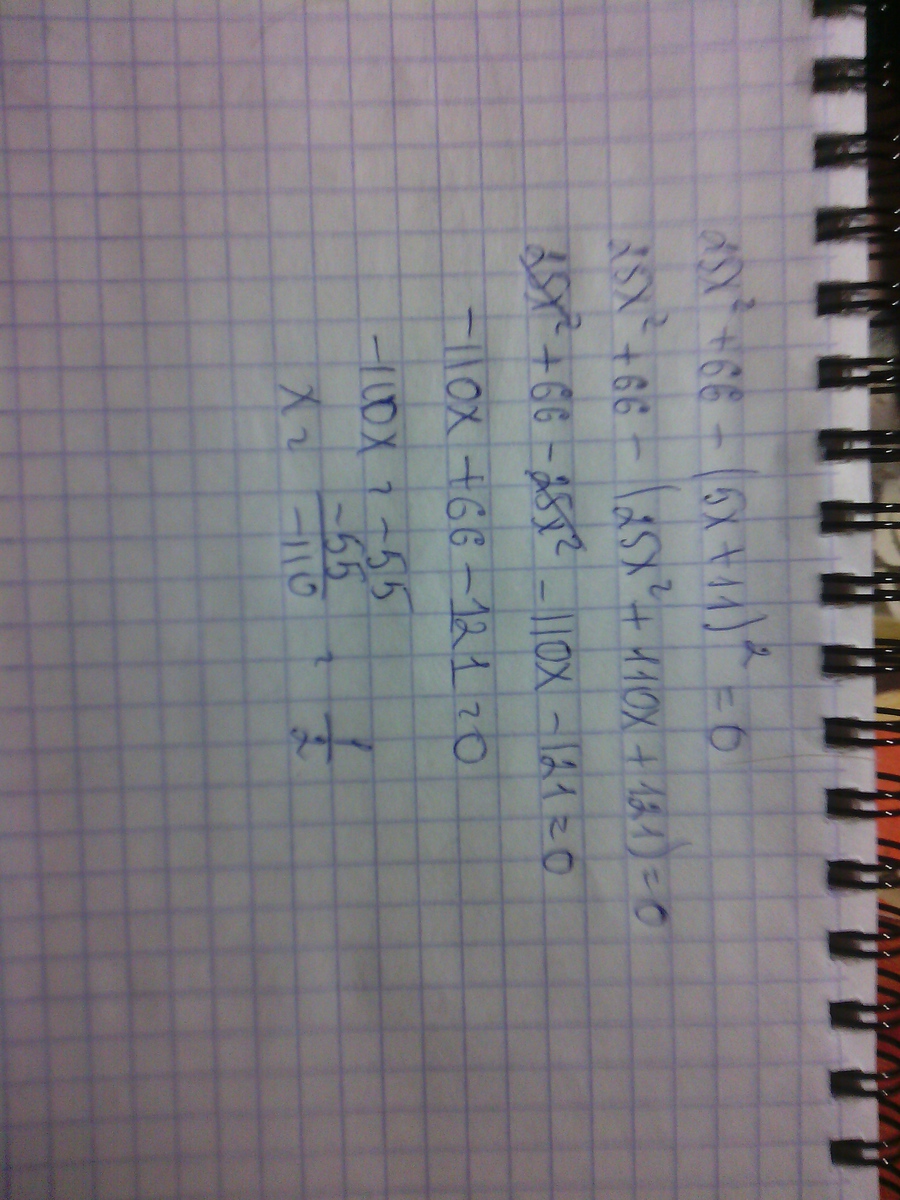 25x² + 66 - (5x + 11)² = 0
25x² + 66 - (25x² + 110x + 121) = 0
25x² + 66 - 25x² - 110x - 121 = 0
-110x + 66 - 121 = 0
-110x = -55
x = -55/-110 = 1/2